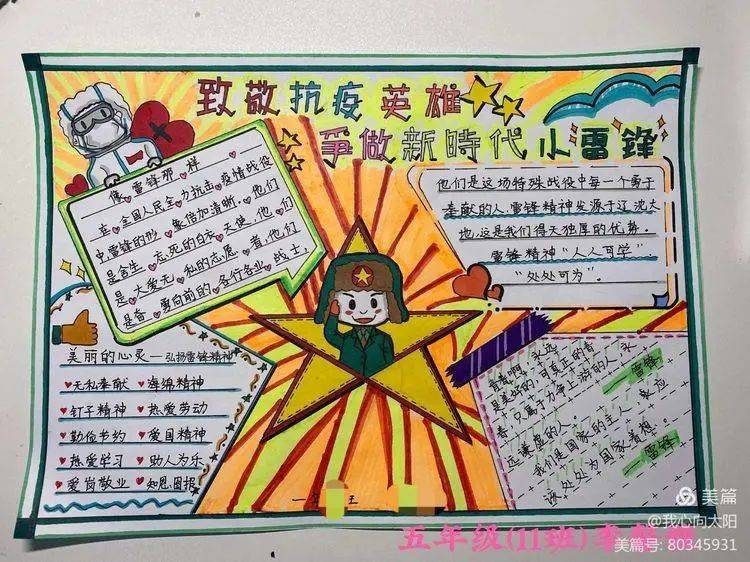 致敬抗疫英雄
争做新時代小雷锋
像雷锋那样
在全国人民全力抗击疫情战役
中雷锋的形象倍加清晰。他们
是舍生忘死的白衣天使,他们
是大爱无私的志愿者,他们
是奋勇向前的各行各业战士,
他们是这场特殊战役中每一个勇于
奉献的人。雷锋精神发源于辽沈大
地,这是我们得天独厚的优势。
雷锋精神“人人可学”
“处处可为”。
美丽的心灵—弘扬雷锋精神
无私奉献 海绵精神
钉子精神 热爱劳动
勤俭节约 爱国精神
热爱学习 助人为乐
爱岗敬业 知恩图报
青春啊,永远
是美好的,可真正的青
春,只属于力争上游的人,永
远谦虚的人。
——雷锋
我们是国家的主人,应
该处处为国家着想。
——雷锋
五年级(11班)
美篇
@我心向太阳
美篇号: 80345931